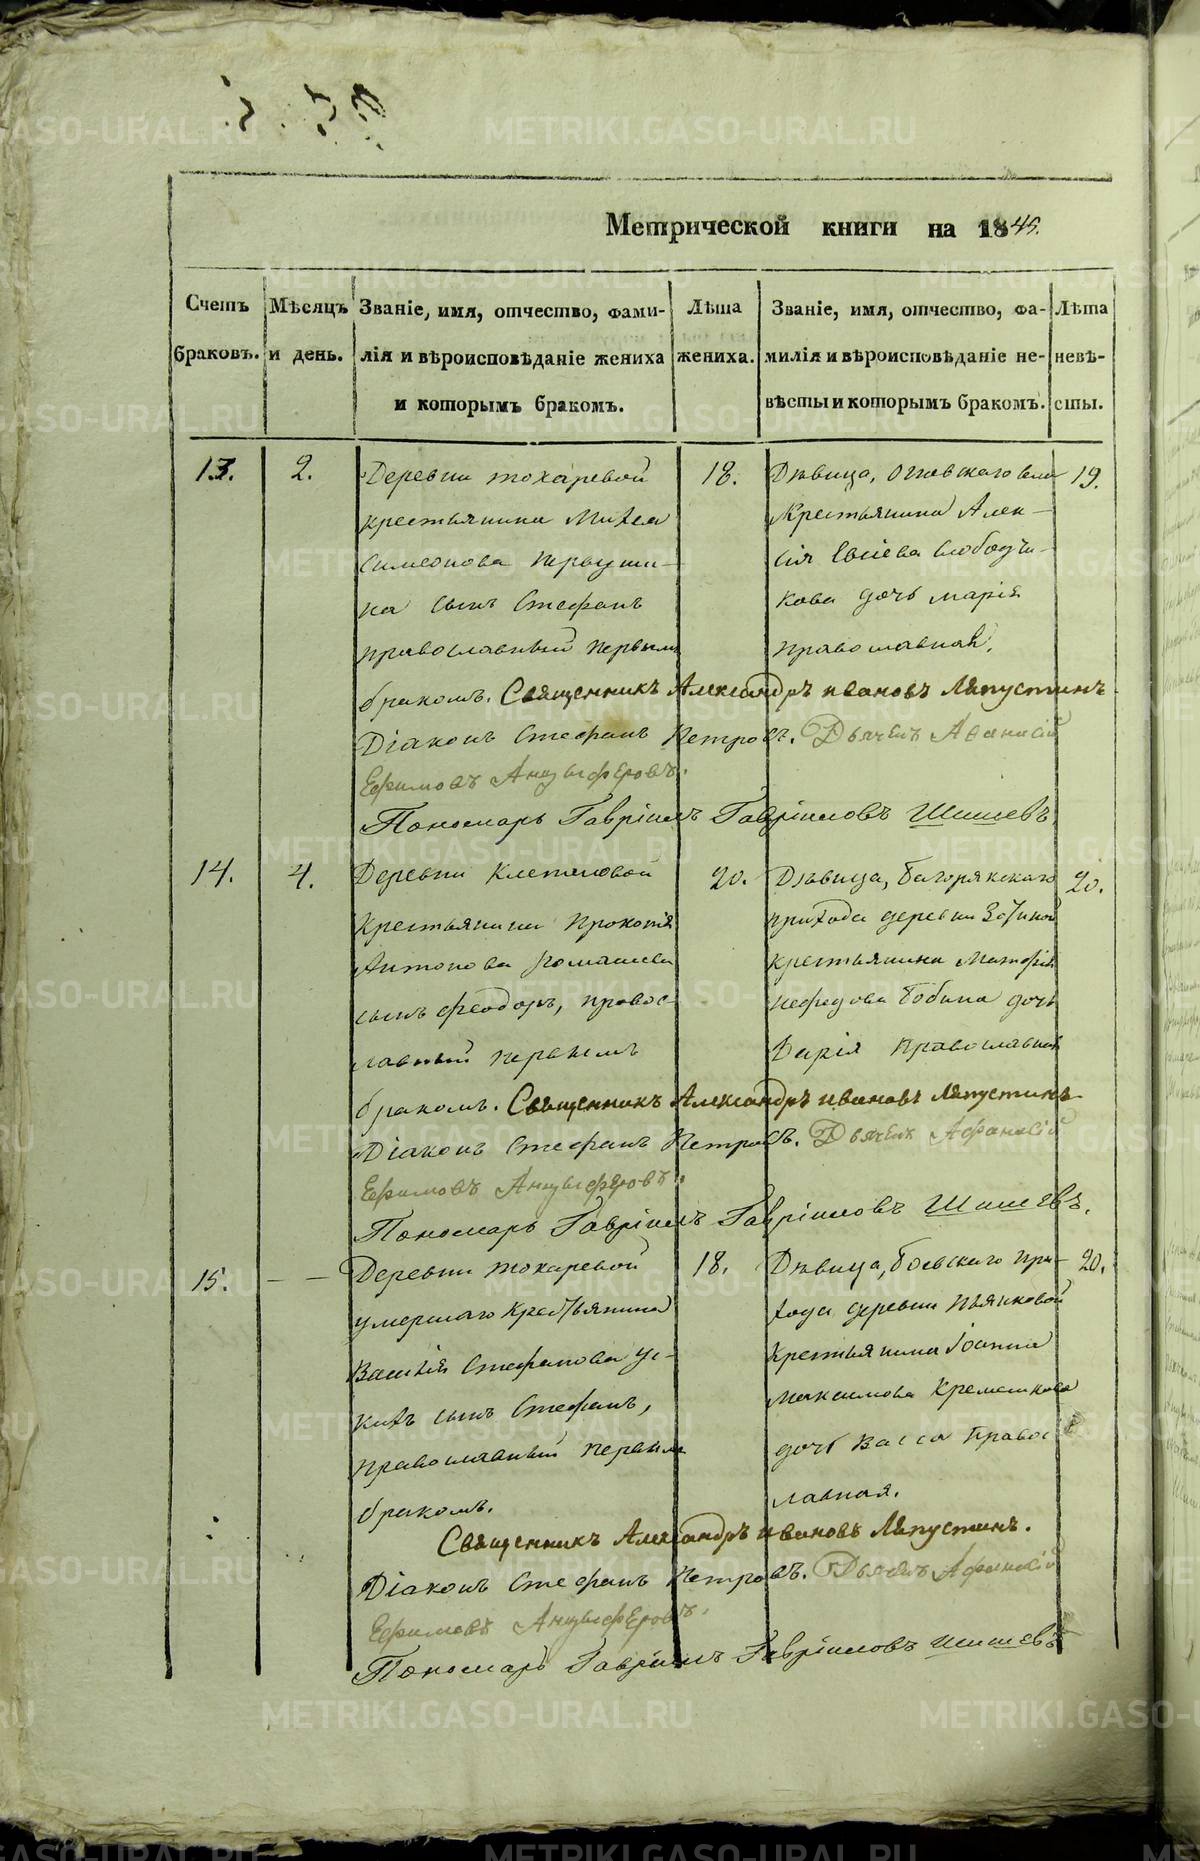 Метрической книги на 1845.
Счетъ браковъ.
Мѣсяцъ и день.
Званіе, имя, отчество, фамилія и вѣроисповѣданіе жениха и которымъ бракомъ.
Лѣта жениха.
Званіе, имя, отчество, фамилія и вѣроисповѣданіе невѣсты и которымъ бракомъ.
Лѣта невѣсты.
13.
2.
Деревни Токаревой
крестьянина Михея
Симеонова Первуши-
на сынъ Стефанъ
православный первымъ
бракомъ.
18.
Дѣвица,
крестьянина Алек-
сія
кова дочь Марія
православная.
19.
Священникъ Александръ Ивановъ Ляпустинъ
Діаконъ Стефанъ Петровъ. Дьячекъ Афанасій
Ефимовъ Анцыферовъ.
Пономарь Гавріилъ Гавріиловъ Шишевъ.
14.
4.
Деревни
Крестьянина Прокопія
Антонова Ромашева
сынъ Феодоръ, правос-
лавный первымъ
бракомъ.
20.
Дѣвица, Багарякскаго
прихода деревни
крестьянина
Нефедова Бабина дочь
Дарія Православная
20.
Священникъ Александръ Ивановъ Ляпустинъ
Діаконъ Стефанъ Петровъ. Дьячекъ Афанасій
Ефимовъ Анцыферовъ.
Пономарь Гавріилъ Гавріиловъ Шишевъ.
15.
— —
Деревни Токаревой
умершаго Крестьянина
Василія Стефанова Ус-
кихъ сынъ Стефанъ,
православный первымъ
бракомъ.
18.
Дѣвица, Боевскаго при-
хода деревни Пьянковой
крестьянина Іоанна
Максимова
дочь Васса Правос-
лавная.
20.
Священникъ Александръ Ивановъ Ляпустинъ.
Діаконъ Стефанъ Петровъ. Дьячекъ Афанасій
Ефимовъ Анцыферовъ.
Пономарь Гавріилъ Гавріиловъ Шишевъ
METRIKI.GASO-URAL.RU